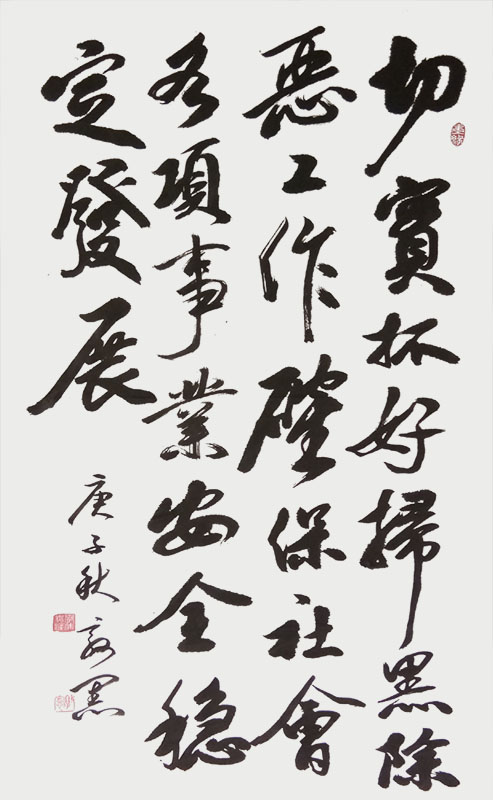 切實抓好掃黑除
惡工作確保社會
各項事業安全穩
定發展
庚子秋